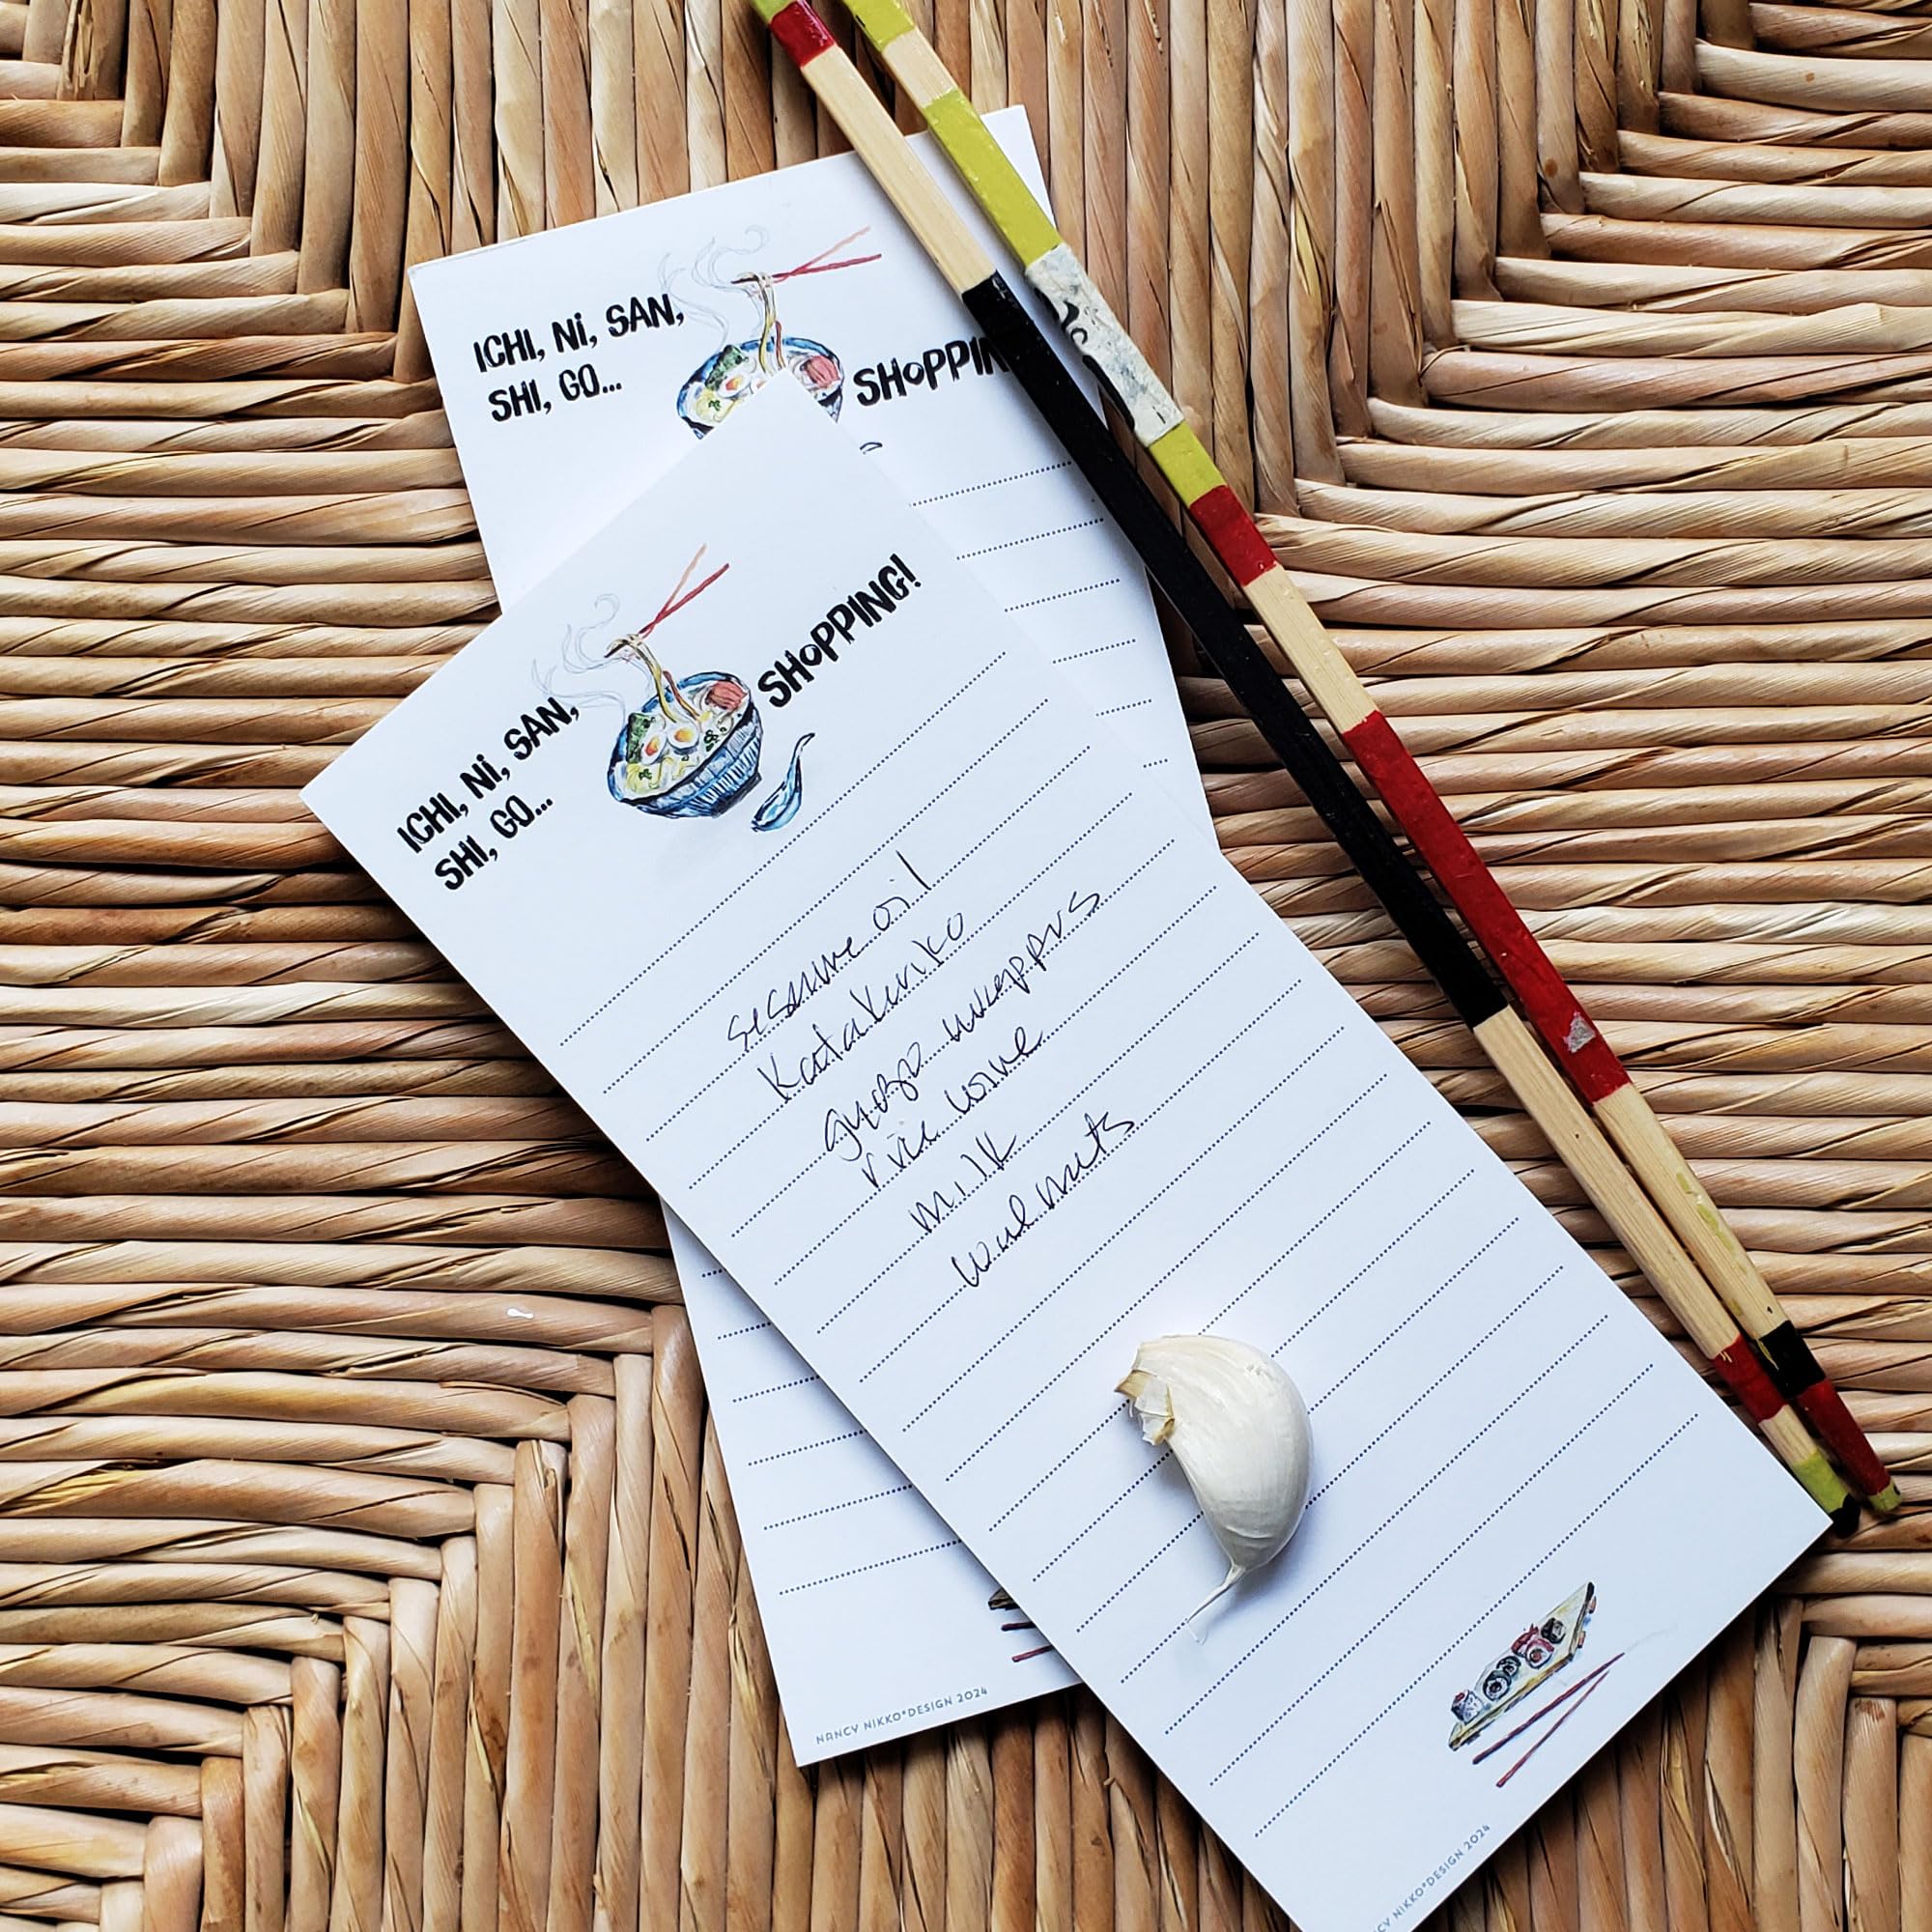 ICHI, Ni, SAN,
SHI, GO...
SHOPPIN
ICHI, Ni, SAN,
SHI, GO...
SHOPPING!
sesame oil
Katakuriko
gyoza wrappers
rice wine
milk
walnuts
NANCY NIKKO*DESIGN 2024
CY NIKKO*DESIGN 2024